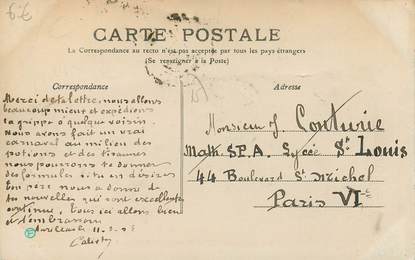 6€
CARTE POSTALE
La Correspondance au recto n'est pas acceptée par tous les pays étrangers
(Se renseigner à la Poste)
Correspondance
Adresse
Merci de ta lettre, nous allons
beaucoup mieux et expédions
la grippe à quelque voisin.
Nous avons fait un vrai
carnaval au milieu des
potions et des tisanes
nous pourrons te donner
des formules si tu en désires
Ton père nous a donné de
tes nouvelles qui sont excellentes
continue, tous ici allons bien
et t'embrassons
11.3.08
Monsieur J. Conturie
Math. SP.A. Lycée St Louis
44 Boulevard St Michel
Paris VIe